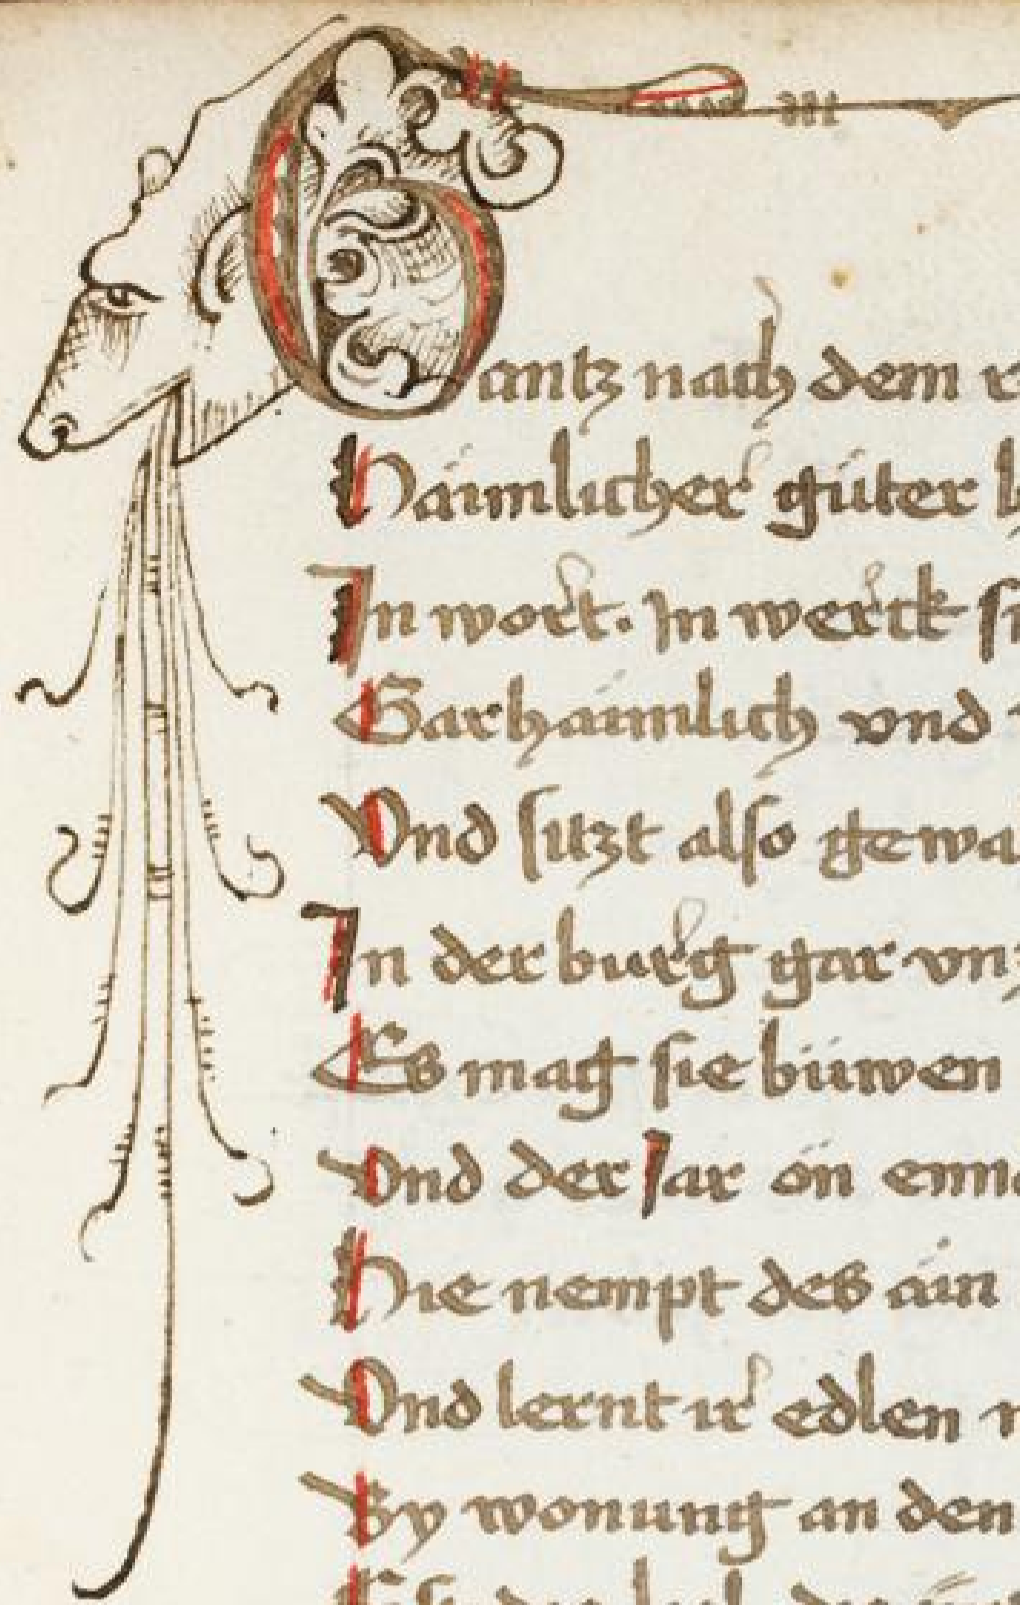 Gantz nach dem
Häimlicher güter
In wort. In werck
Garhäimlich vnd
Vnd sitzt also gewa
In der burg gar vnz
Es mag sie büwen
Vnd der Jar ön enn
Hie nempt des äin
Vnd lernt ir edlen
By wonung an den